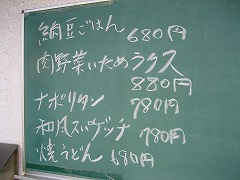 納豆ごはん 680円
肉野菜いためラクス
880円
ナポリタン 780円
和風スパゲッチ 780円
焼うどん 690円